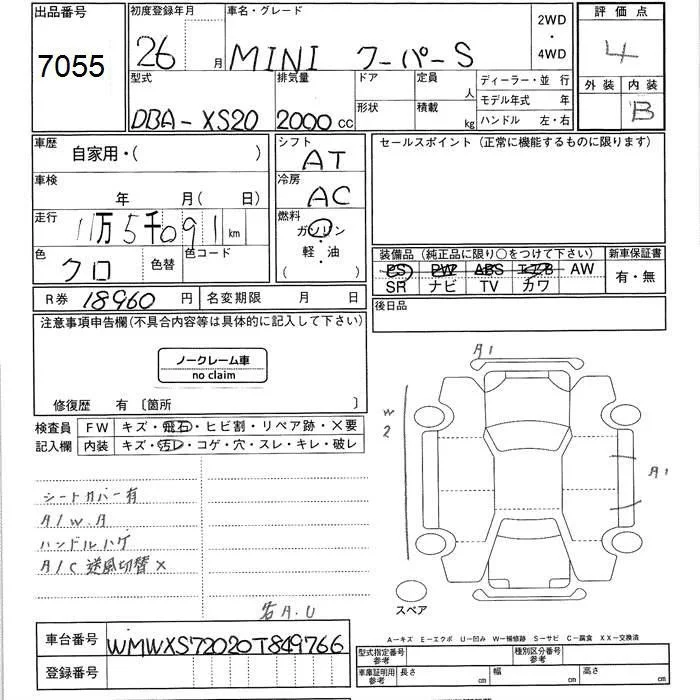 出品番号 初度登録年月 車名・グレード 2WD ・ 4WD 評価点
7055 26 月 MINI クーパーS 4
型式 排気量 ドア 定員 人 ディーラー・並行 外装 内装
DBA-XS20 2000 cc 形状 積載 kg モデル年式 年 B
ハンドル 左・右
車歴 自家用・( ) シフト AT セールスポイント (正常に機能するものに限ります)
車検 年 月( 日) 冷房 AC
走行 11万5千091 km 燃料 ガソリン・軽・油 ( )
色 クロ 色替 色コード
装備品 (純正品に限り○をつけて下さい) 新車保証書
PS PW ABS エアB AW 有・無
SR ナビ TV カワ
R券 18960 円 名変期限 月 日 後日品
注意事項申告欄(不具合内容等は具体的に記入して下さい)
ノークレーム車
no claim
修復歴 有 〔箇所 〕
検査員 FW キズ・飛石・ヒビ割・リペア跡・×要
記入欄 内装 キズ・汚レ・コゲ・穴・スレ・キレ・破レ
A1
W2
A1
シートカバー有
A/W.A
ハンドルハゲ
A/C 送風切替×
各A.U
スペア
車台番号 WMWXS72020T849766
登録番号
A…キズ E…エクボ U…凹み W…補修跡 S…サビ C…腐食 XX…交換済
型式指定番号 参考 種別区分番号 参考
車庫証明用 参考 長さ cm 幅 cm 高さ cm